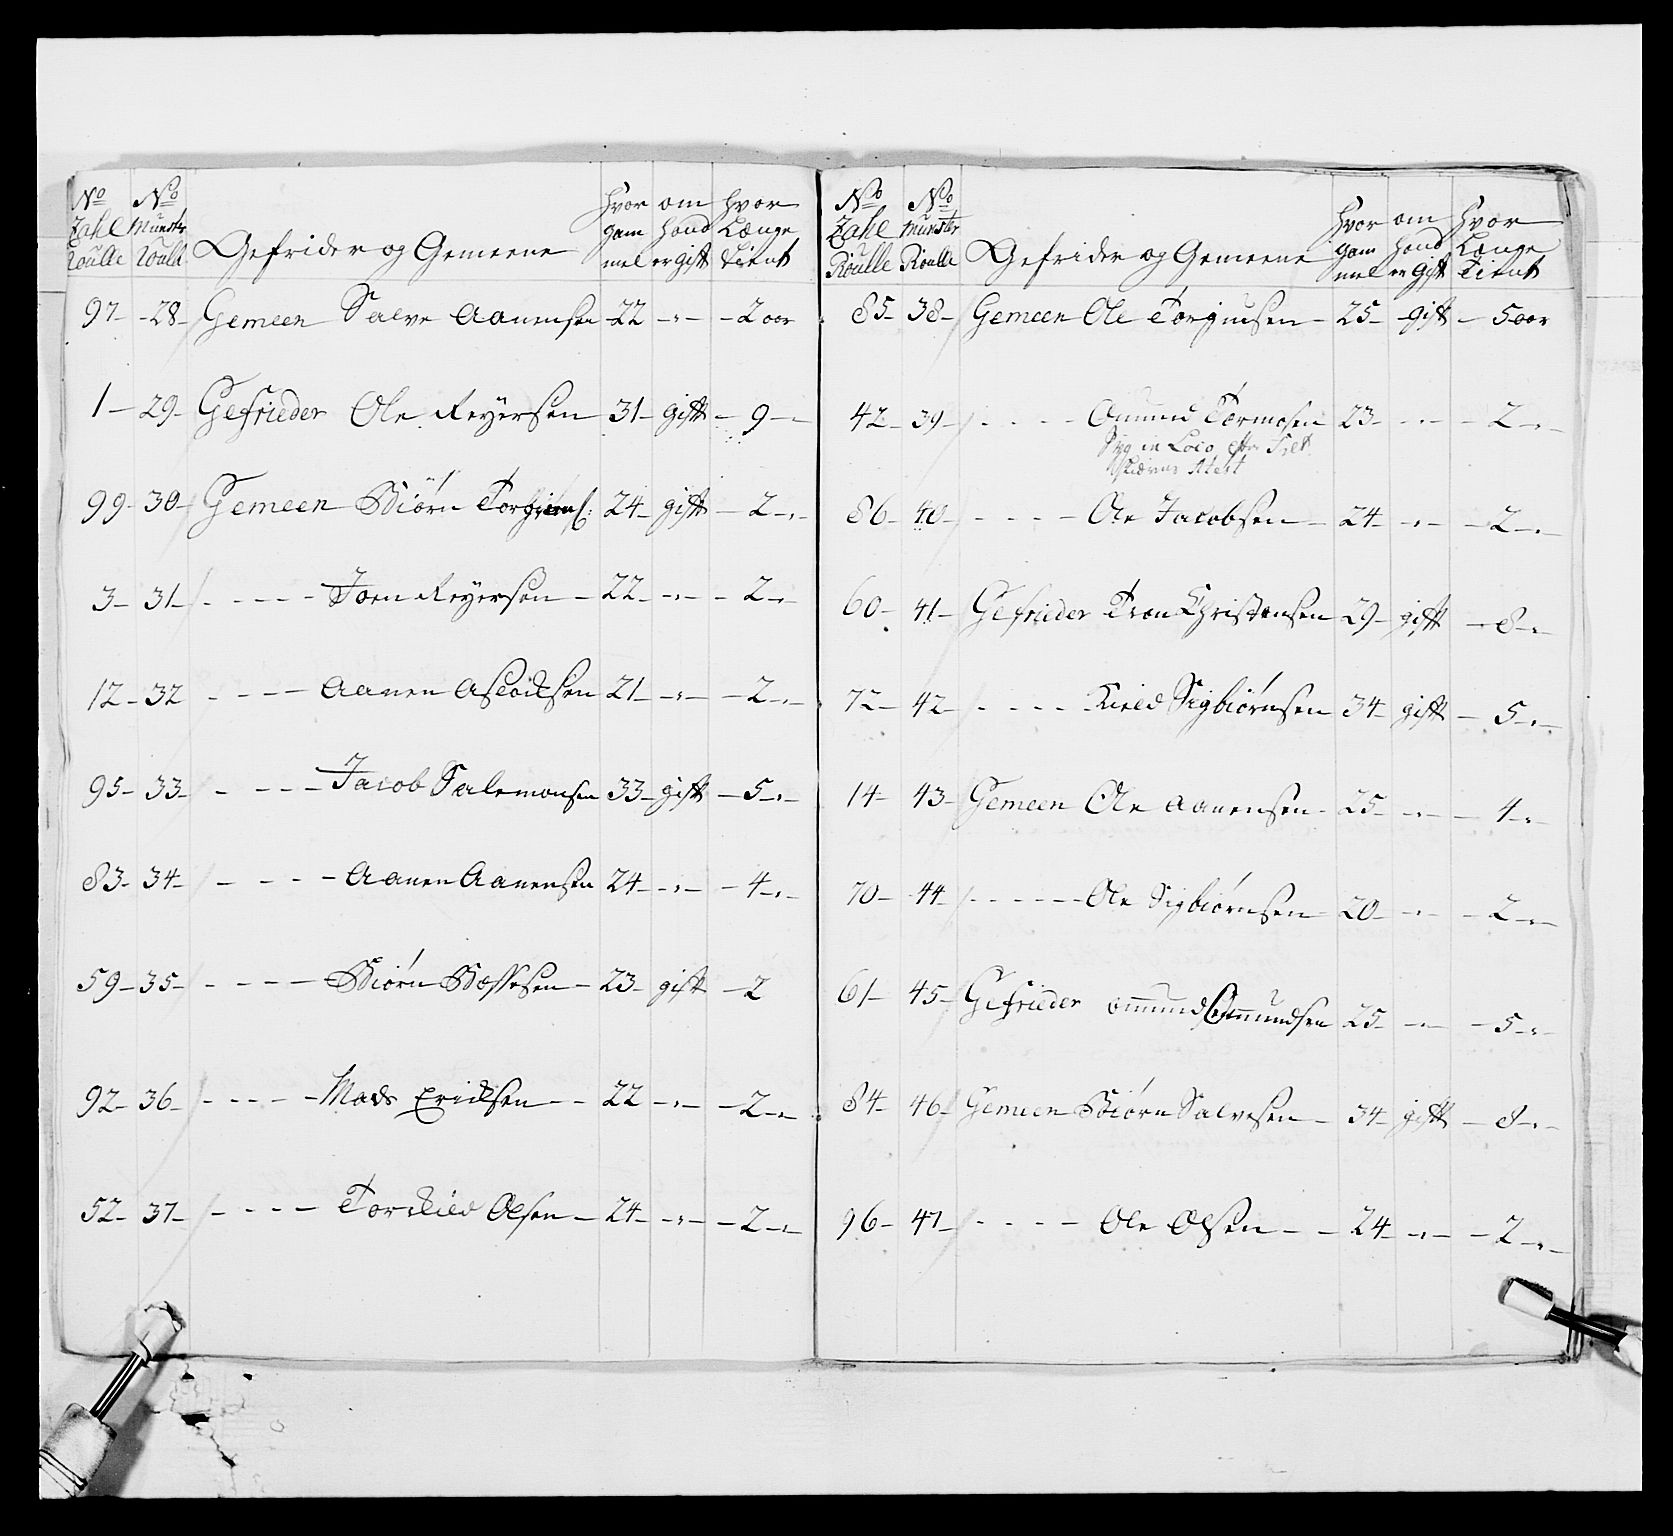 No No Hvor om Hvor
Zahl Munster gam hand Længe
Roulle Roulle Gefrider og Gemeene mel er gift Tient
97 - 28 - Gemeen Salve Aanensen - 22 - " - - 2 aar
1 - 29 - Gefrieder Ole Reyersen 31 - gift - 9 -
99 - 30 - Gemeen Biörn 24 - gift - 2 - " -
3 - 31 - - - - - Joen Reyersen - 22 - " - - 2 - " -
12 - 32 - - - - Aanen Asloksen 21 - " - - 2 - " -
95 - 33 - - - - - Jacob Salemonsen 33 - gift - 5 - " -
83 - 34 - - - - - Aanen Aanensen 24 - " - - 4 - " -
59 - 35 - - - - - Biörn Bossesen - 23 - gift - 2
92 - 36 - - - - - Mads Ericksen - - 22 - " - - 2 - " -
52 - 37 - - - - - Torkild Olsen - 24 - " - - 2 - " -
No No Hvor om Hvor
Zahl Munster gam hand Længe
Roulle Roulle Gefrider og Gemeene mel er gift Tient
85 - 38 - Gemeen Ole Torgusen - 25 - gift - 5 aar
42 - 39 - - - - - Omund Tormosen 23 - " - - 2 - " -
Syg in Loco efter
Attest
86 - 40 - - - - - Ole Jacobsen - 24 - " - - 2 - " -
60 - 41 - Gefrieder Tron Christensen 29 - gift - 8 - " -
72 - 42 - - - - - Kield Sigbiörnsen 34 - gift - 5 - " -
14 - 43 - Gemeen Ole Aanensen - 25 - " - - 4 - " -
70 - 44 - - - - - Ole Sigbiörnsen - 20 - " - - 2 - " -
61 - 45 - Gefrieder Omund Omundsen 25 - " - - 5 - " -
84 - 46 - Gemeen Biörn Salvesen - 34 - gift - 8 - " -
96 - 47 - - - - - Ole Olsen - - 24 - " - - 2 - " -